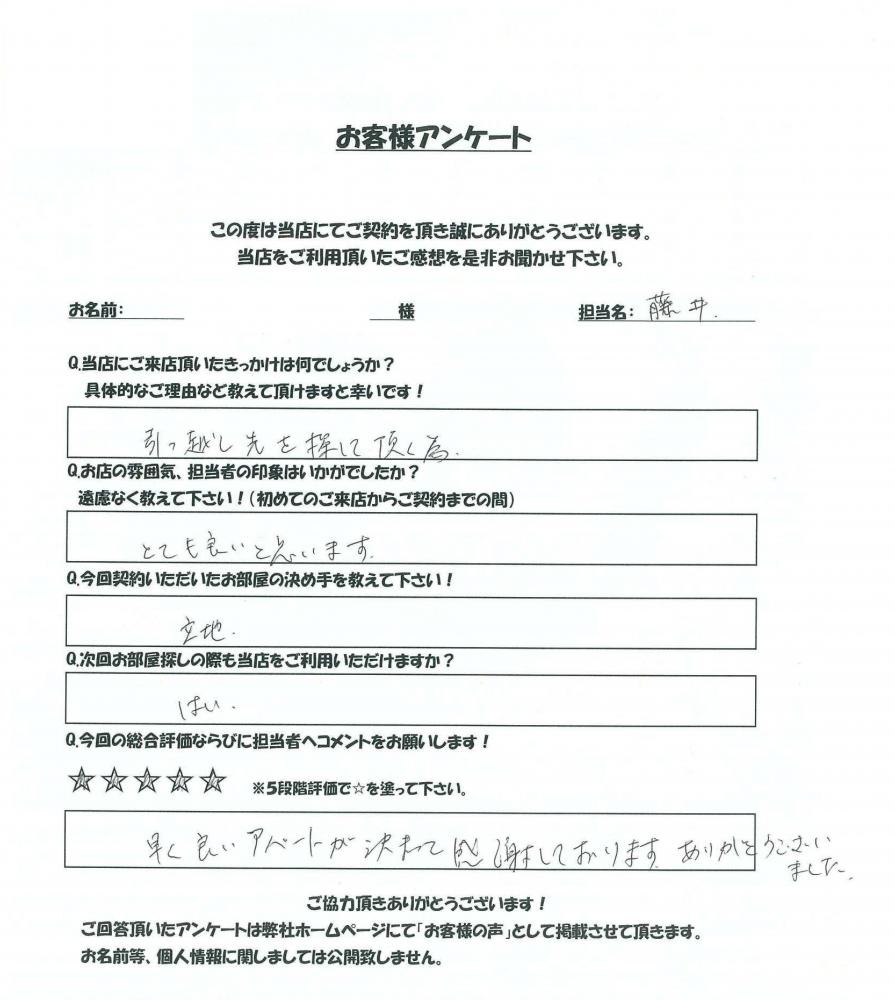 お客様アンケート
この度は当店にてご契約を頂き誠にありがとうございます。
当店をご利用頂いたご感想を是非お聞かせ下さい。
お名前: 様 担当名: 藤井.
Q.当店にご来店頂いたきっかけは何でしょうか？
具体的なご理由など教えて頂けますと幸いです！
引っ越し先を探して頂く為.
Q.お店の雰囲気、担当者の印象はいかがでしたか？
遠慮なく教えて下さい！(初めてのご来店からご契約までの間)
とても良いと思います.
Q.今回契約いただいたお部屋の決め手を教えて下さい！
立地.
Q.次回お部屋探しの際も当店をご利用いただけますか？
はい.
Q.今回の総合評価ならびに担当者へコメントをお願いします！
☆☆☆☆☆ ※5段階評価で☆を塗って下さい。
早く良いアパートが決まって感謝しております. ありがとうござい
ました.
ご協力頂きありがとうございます！
ご回答頂いたアンケートは弊社ホームページにて「お客様の声」として掲載させて頂きます。
お名前等、個人情報に関しましては公開致しません。